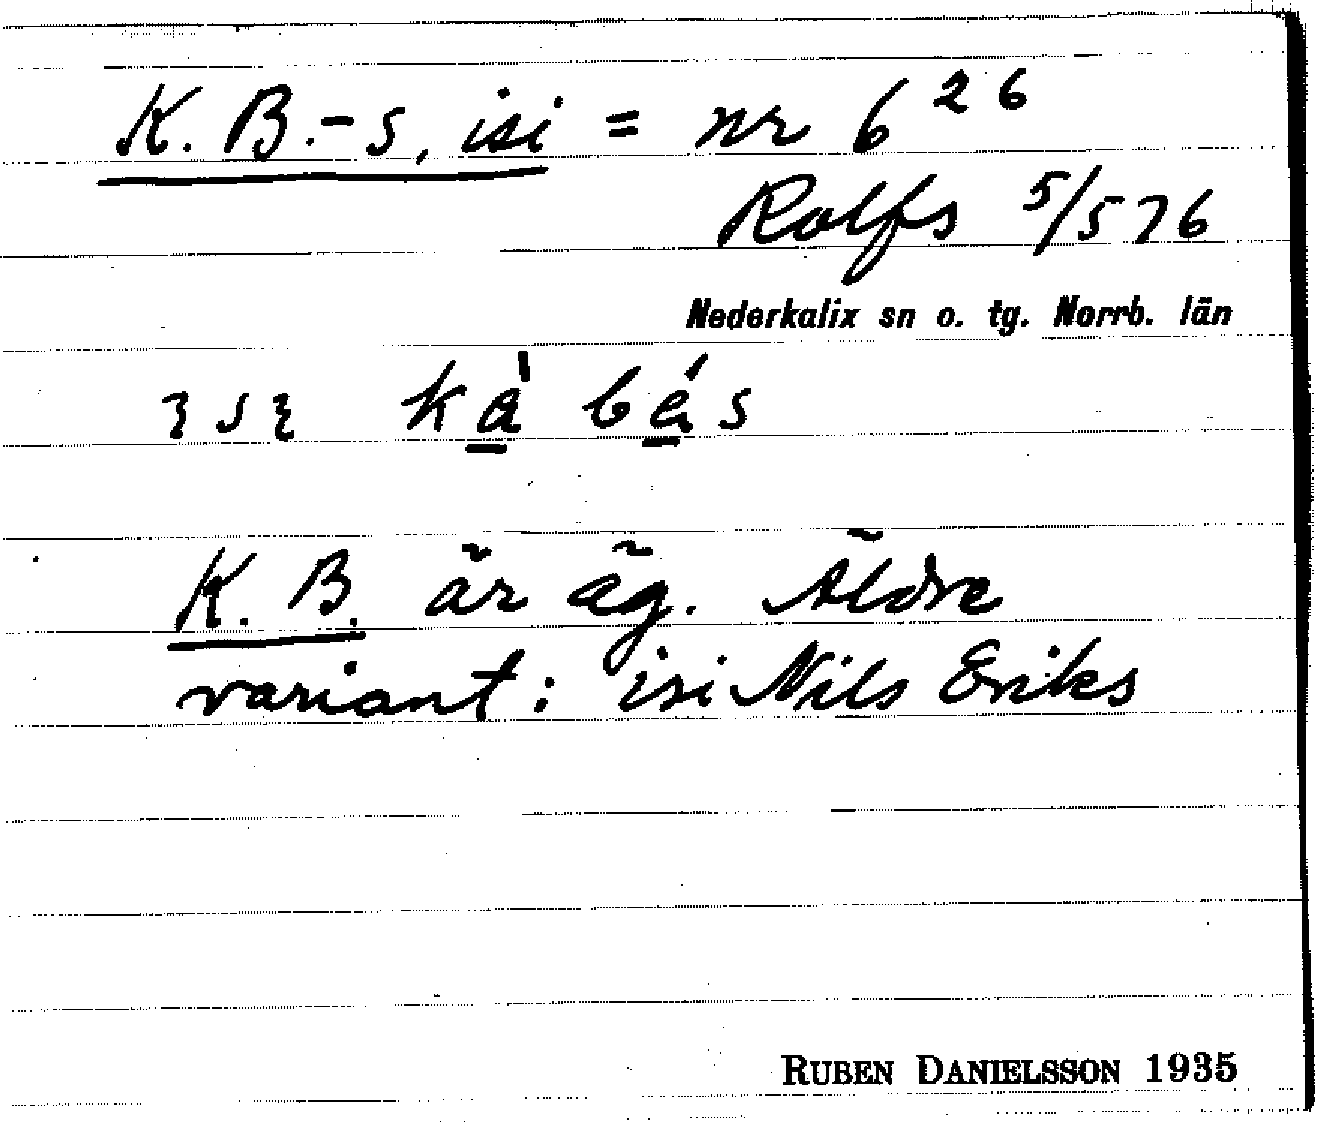 K. B.-s, isi = nr 6²⁶
Rolfs 5/576
Nederkalix sn o. tg. Norrb. län
ꝫsꝫ kà bés
K. B. är äg. Äldre
variant: isi Nils Eriks
RUBEN DANIELSSON 1935